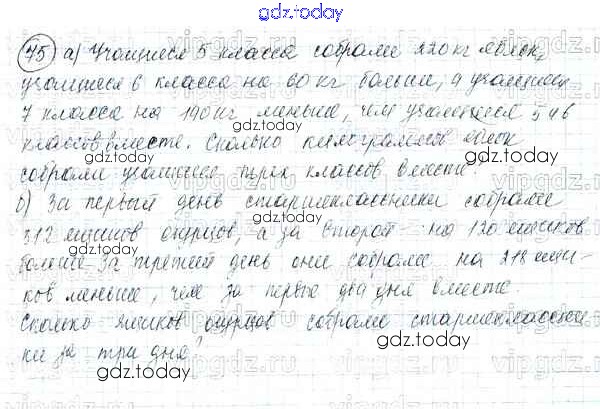 gdz.today
75 а) Учащиеся 5 класса собрали 220 кг яблок,
учащиеся 6 класса на 60 кг больше, а учащиеся
7 класса на 190 кг меньше, чем учащиеся 5 и 6
gdz.today
классов вместе. Сколько килограммов яблок
gdz.today
собрали учащиеся трех классов вместе.
б) За первый день старшеклассники собрали
gdz.today
312 ящиков огурцов, а за второй - на 120 ящиков
больше За третий день они собрали на 218 ящи-
gdz.today
ков меньше, чем за первые два дня вместе.
Сколько ящиков огурцов собрали старшеклассни
gdz.today
ки за три дня?
gdz.today